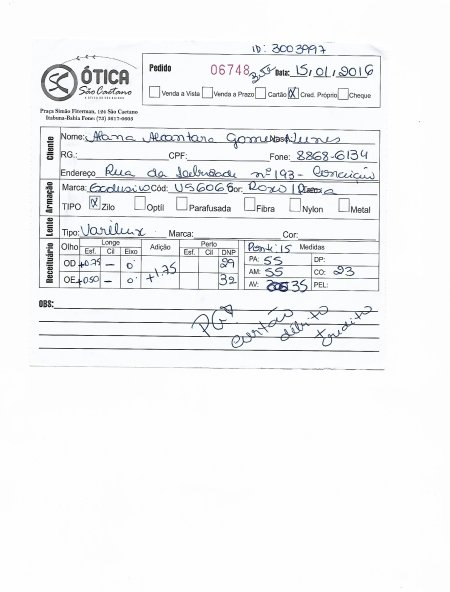 ID: 3003997
ÓTICA
São Caetano
Pedido 06748 Data: 15/01/2016
Venda a Vista Venda a Prazo Cartão X Cred. Próprio Cheque
Praça Simão Fiterman, 124 São Caetano
Itabuna-Bahia Fone: (73) 3617-0603
Cliente
Nome: Alana Alcantara Gomes Nunes
RG.: CPF: Fone: 8868-6134
Endereço Rua da nº 193 - Conceição
Armação
Marca: Exclusivo Cód: US6065 Cor: Roxo
TIPO X Zilo Optíl Parafusada Fibra Nylon Metal
Lente
Tipo: Varilux Marca: Cor:
Receituário
Olho Longe Adição Perto Pont: 15 Medidas
Esf. Cil Eixo Esf. Cil DNP
OD +0.75 — 0° +1.75 29 PA: 55 DP:
AM: 55 CO: 23
OE +0.50 — 0° 32 AV: 35 PEL:
OBS:
PG
cartão
débito
credito